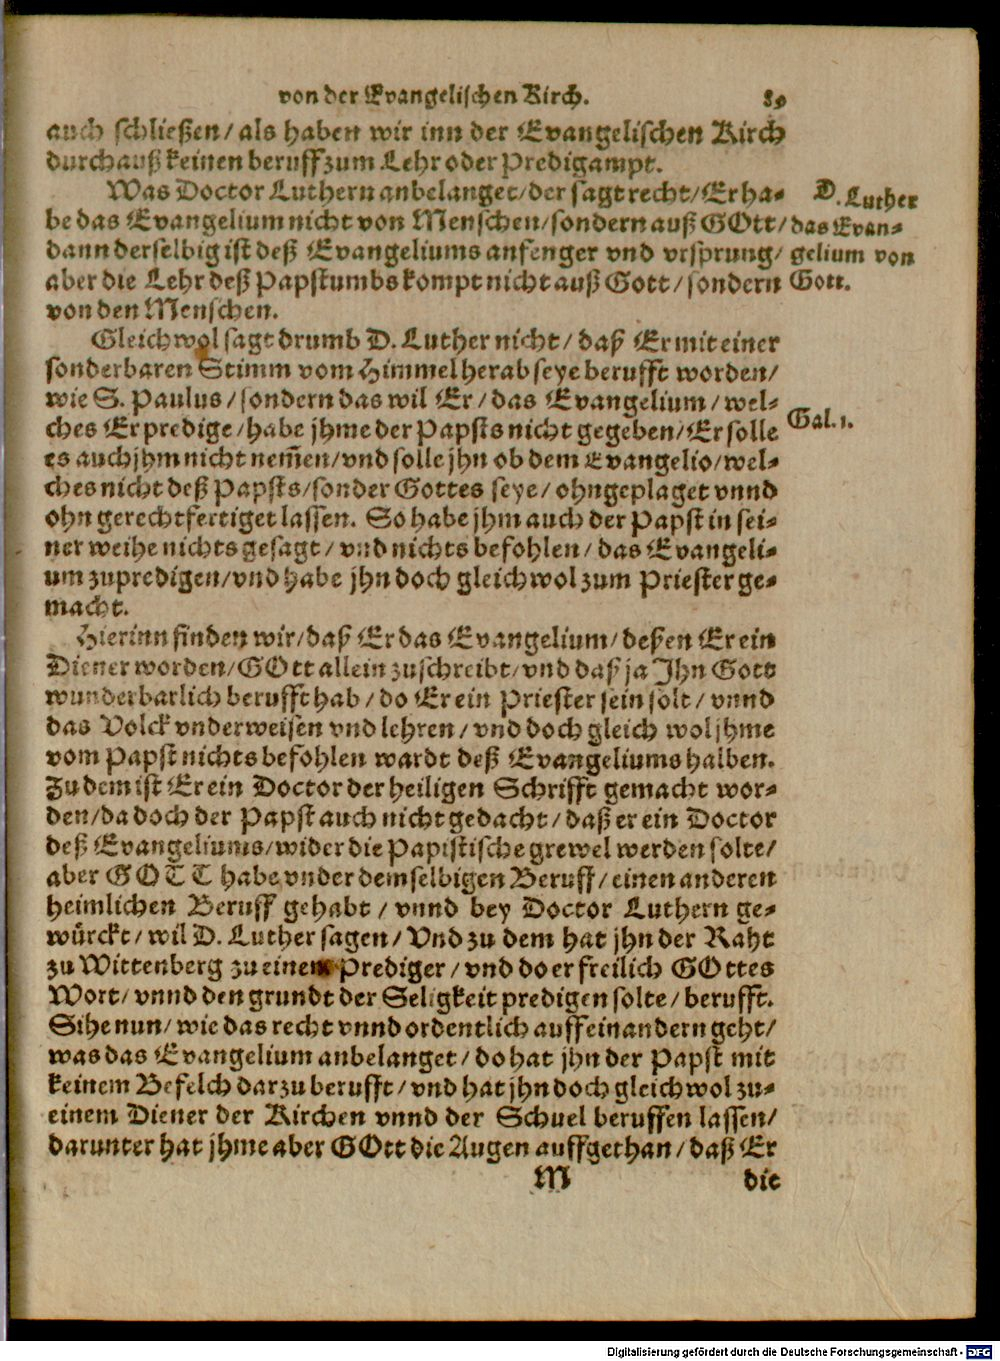 von der Evangelischen Kirch. 89
auch schließen/ als haben wir inn der Evangelischen Kirch
durchauß keinen beruff zum Lehr oder Predigampt.
Was Doctor Luthern anbelanget/ der sagt recht/ Er ha-
be das Evangelium nicht von Menschen/ sondern auß GOtt/
dann derselbig ist deß Evangeliums anfenger vnd vrsprung/
aber die Lehr deß Papstumbs kompt nicht auß Gott/ sondern
von den Menschen.
D. Luther
das Evan-
gelium von
Gott.
Gleichwol sagt drumb D. Luther nicht/ daß Er mit einer
sonderbaren Stimm vom Himmel herab seye berufft worden/
wie S. Paulus/ sondern das wil Er/ das Evangelium/ wel-
ches Er predige/ habe jhme der Papsts nicht gegeben/ Er solle
es auch jhm nicht nem̃en/ vnd solle jhn ob dem Evangelio/ wel-
ches nicht deß Papsts/ sonder Gottes seye/ ohngeplaget vnnd
ohn gerechtfertiget lassen. So habe jhm auch der Papst in sei-
ner weihe nichts gesagt/ vnd nichts befohlen/ das Evangeli-
um zupredigen/ vnd habe jhn doch gleichwol zum Priester ge-
macht.
Gal. 1.
Hierinn finden wir/ daß Er das Evangelium/ deßen Er ein
Diener worden/ GOtt allein zuschreibt/ vnd daß ja Jhn Gott
wunderbarlich berufft hab/ do Er ein Priester sein solt/ vnnd
das Volck vnderweisen vnd lehren/ vnd doch gleich wol jhme
vom Papst nichts befohlen wardt deß Evangeliums halben.
Zu dem ist Er ein Doctor der heiligen Schrifft gemacht wor-
den/ da doch der Papst auch nicht gedacht/ daß er ein Doctor
deß Evangeliums/ wider die Papistische grewel werden solte/
aber GOTT habe vnder demselbigen Beruff/ einen anderen
heimlichen Beruff gehabt/ vnnd bey Doctor Luthern ge-
würckt/ wil D. Luther sagen/ Vnd zu dem hat jhn der Raht
zu Wittenberg zu einem Prediger/ vnd do er freilich GOttes
Wort/ vnnd den grundt der Seligkeit predigen solte/ berufft.
Sihe nun/ wie das recht vnnd ordentlich auff einandern geht/
was das Evangelium anbelanget/ do hat jhn der Papst mit
keinem Befelch darzu berufft/ vnd hat jhn doch gleichwol zu-
einem Diener der Kirchen vnnd der Schuel beruffen lassen/
darunter hat jhme aber GOtt die Augen auffgethan/ daß Er
M die
Digitalisierung gefördert durch die Deutsche Forschungsgemeinschaft - DFG